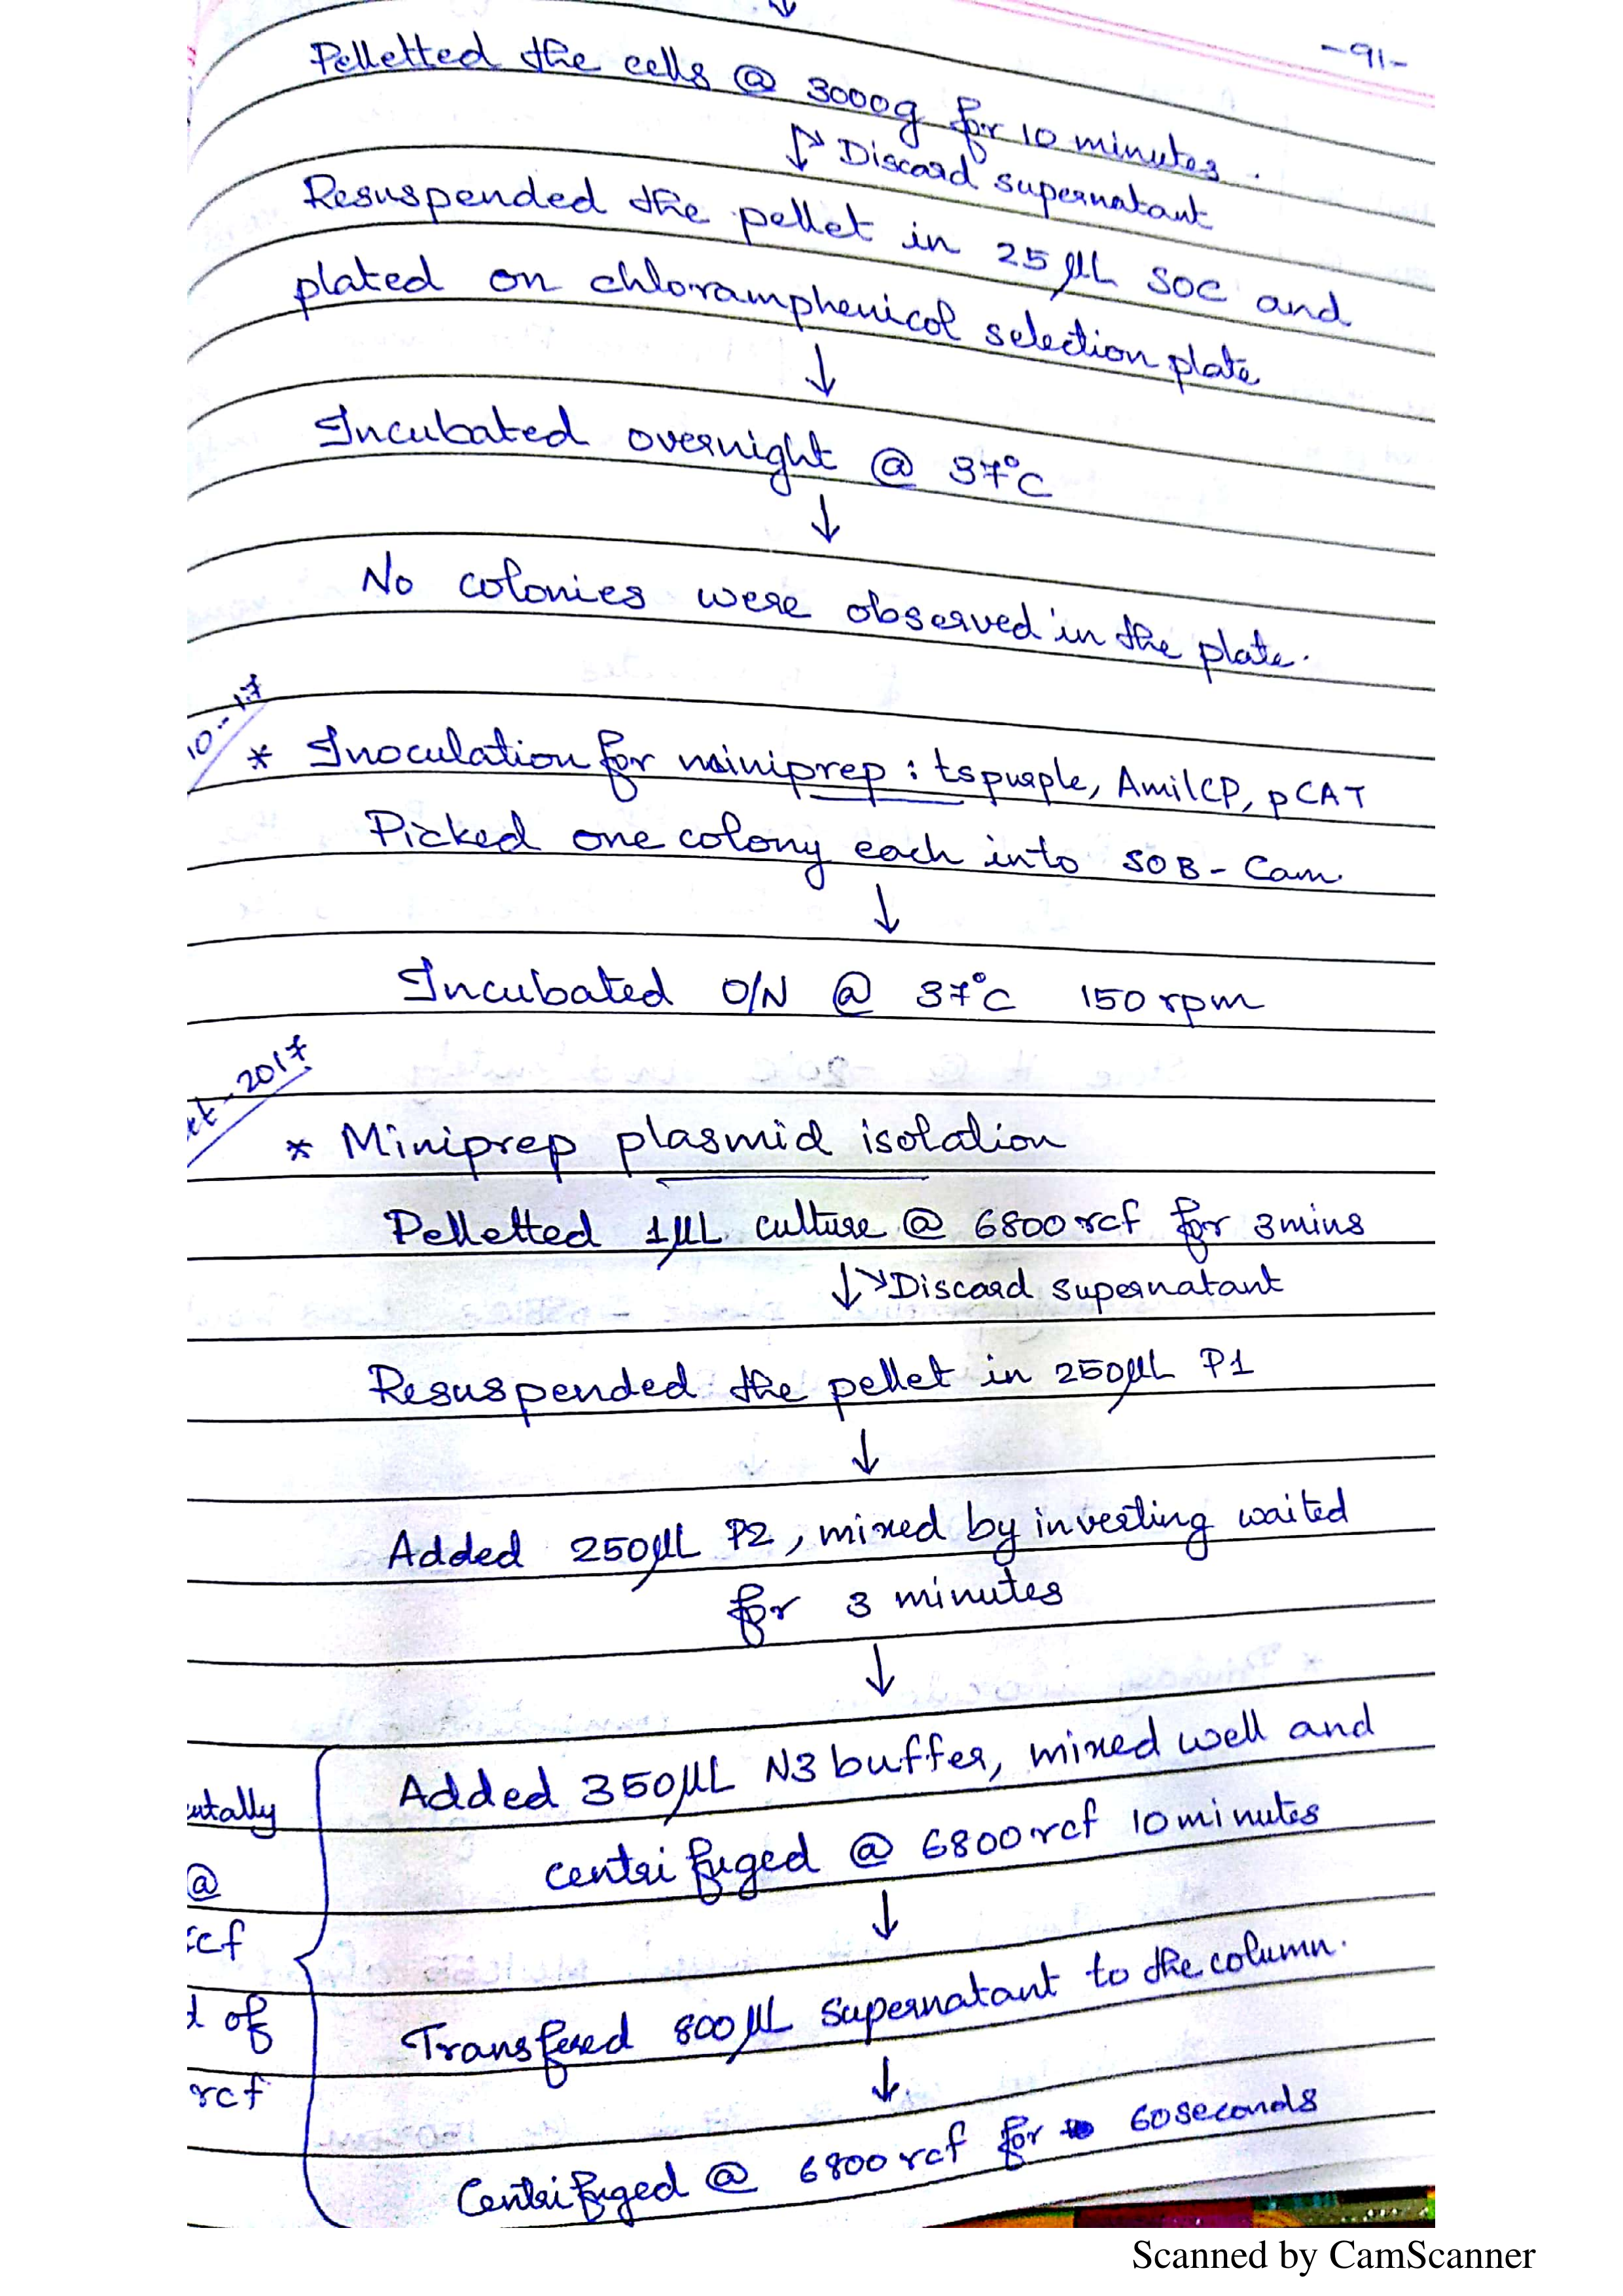 -91-
↓
Pelletted the cells @ 3000g for 10 minutes.
↓→ Discard supernatant
Resuspended the pellet in 25µL SOC and
plated on chloramphenicol selection plate
↓
Incubated overnight @ 37°C
↓
No colonies were observed in the plate.
10-17
* Inoculation for miniprep : tspurple, AmilCP, pCAT
Picked one colony each into SOB-Cam.
↓
Incubated O/N @ 37°C 150 rpm
ct-2017
* Miniprep plasmid isolation
Pelletted 1µL culture @ 6800 rcf for 3 mins
↓→ Discard supernatant
Resuspended the pellet in 250µL P1
↓
Added 250µL P2, mixed by inverting waited
for 3 minutes
↓
Added 350µL N3 buffer, mixed well and
centrifuged @ 6800 rcf 10 minutes
↓
Transfered 800µL supernatant to the column.
↓
Centrifuged @ 6800 rcf for 60 seconds
ntally
@
rcf
d of
rcf
Scanned by CamScanner